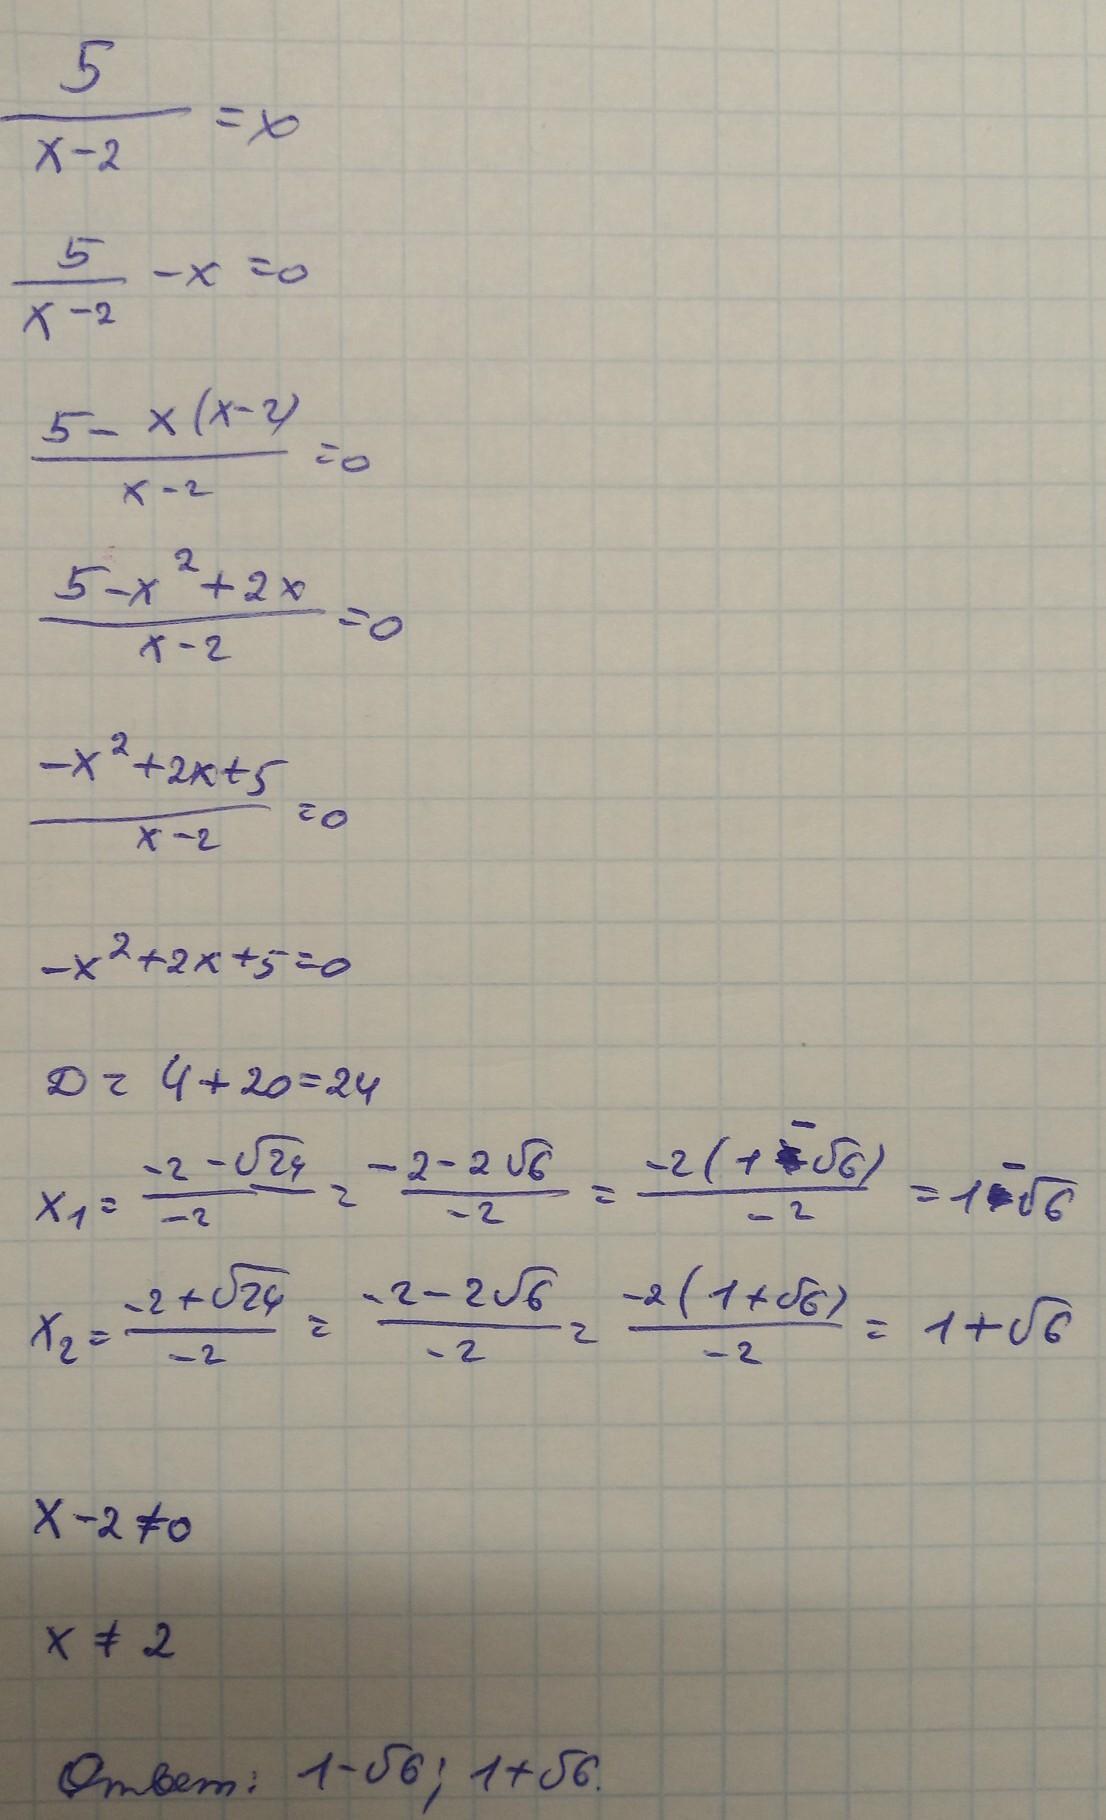 5/(x-2) = x
5/(x-2) - x = 0
(5 - x(x-2))/(x-2) = 0
(5 - x² + 2x)/(x-2) = 0
(-x² + 2x + 5)/(x-2) = 0
-x² + 2x + 5 = 0
D = 4 + 20 = 24
x₁ = (-2 - √24)/(-2) = (-2 - 2√6)/(-2) = (-2(1 - √6))/(-2) = 1 - √6
x₂ = (-2 + √24)/(-2) = (-2 - 2√6)/(-2) = (-2(1 + √6))/(-2) = 1 + √6
x - 2 ≠ 0
x ≠ 2
Ответ: 1-√6; 1+√6.